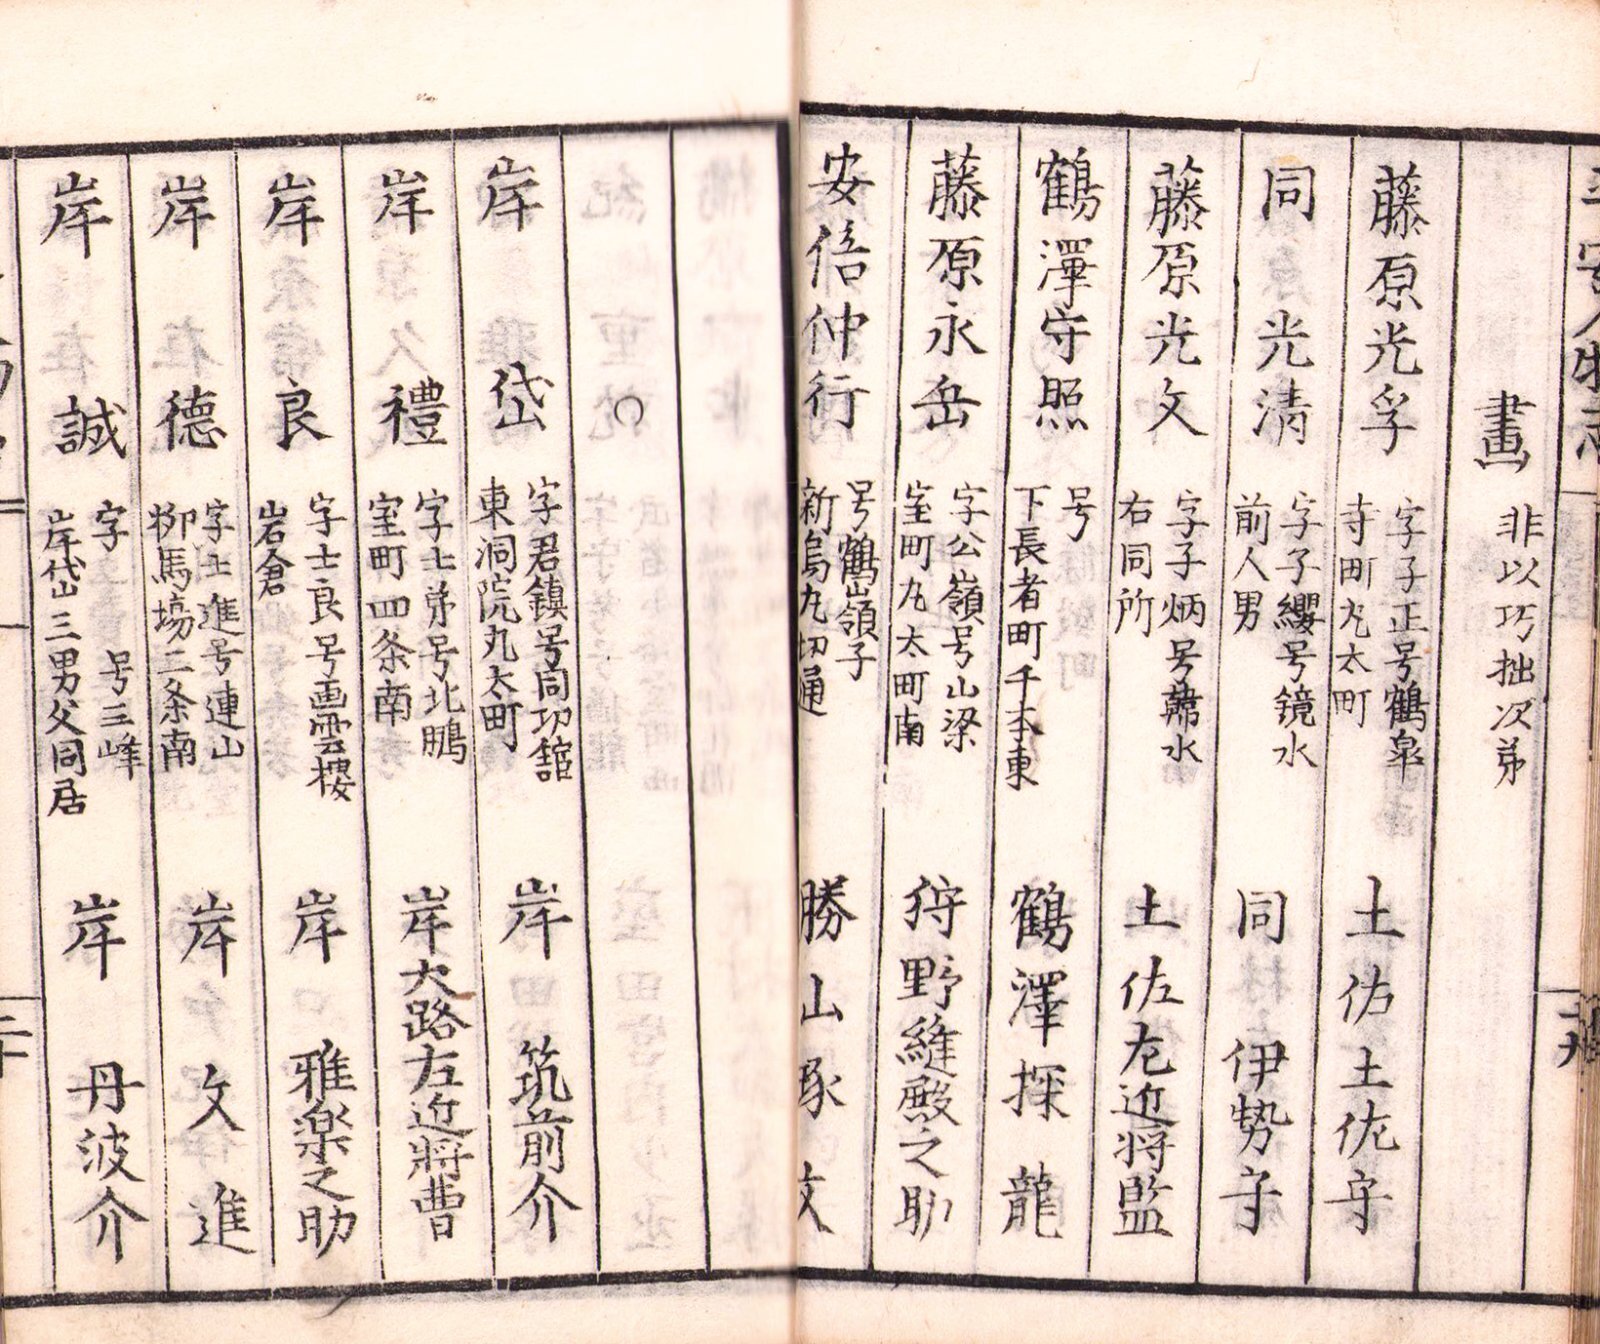 平安人物志
畫
非以巧拙次第
藤原光孚
字子正号鶴皐
寺町丸太町
土佐土佐守
同光清
字子纓号鏡水
前人男
同伊勢守
藤原光文
字子炳号韡水
右同所
土佐左近将監
鶴澤守照
号
下長者町千本東
鶴澤探龍
藤原永岳
字公嶺号山梁
室町丸太町南
狩野縫殿之助
安倍仲行
号鶴嶺子
新烏丸切通
勝山琢文
〇
岸岱
字君鎮号同功館
東洞院丸太町
岸筑前介
岸禮
字士弟号北鵬
室町四条南
岸大路左近將曹
岸良
字士良号画雲楼
岩倉
岸雅楽之助
岸德
字士進号連山
柳馬場二条南
岸文進
岸誠
字 号三峰
岸岱三男父同居
岸丹波介
二十